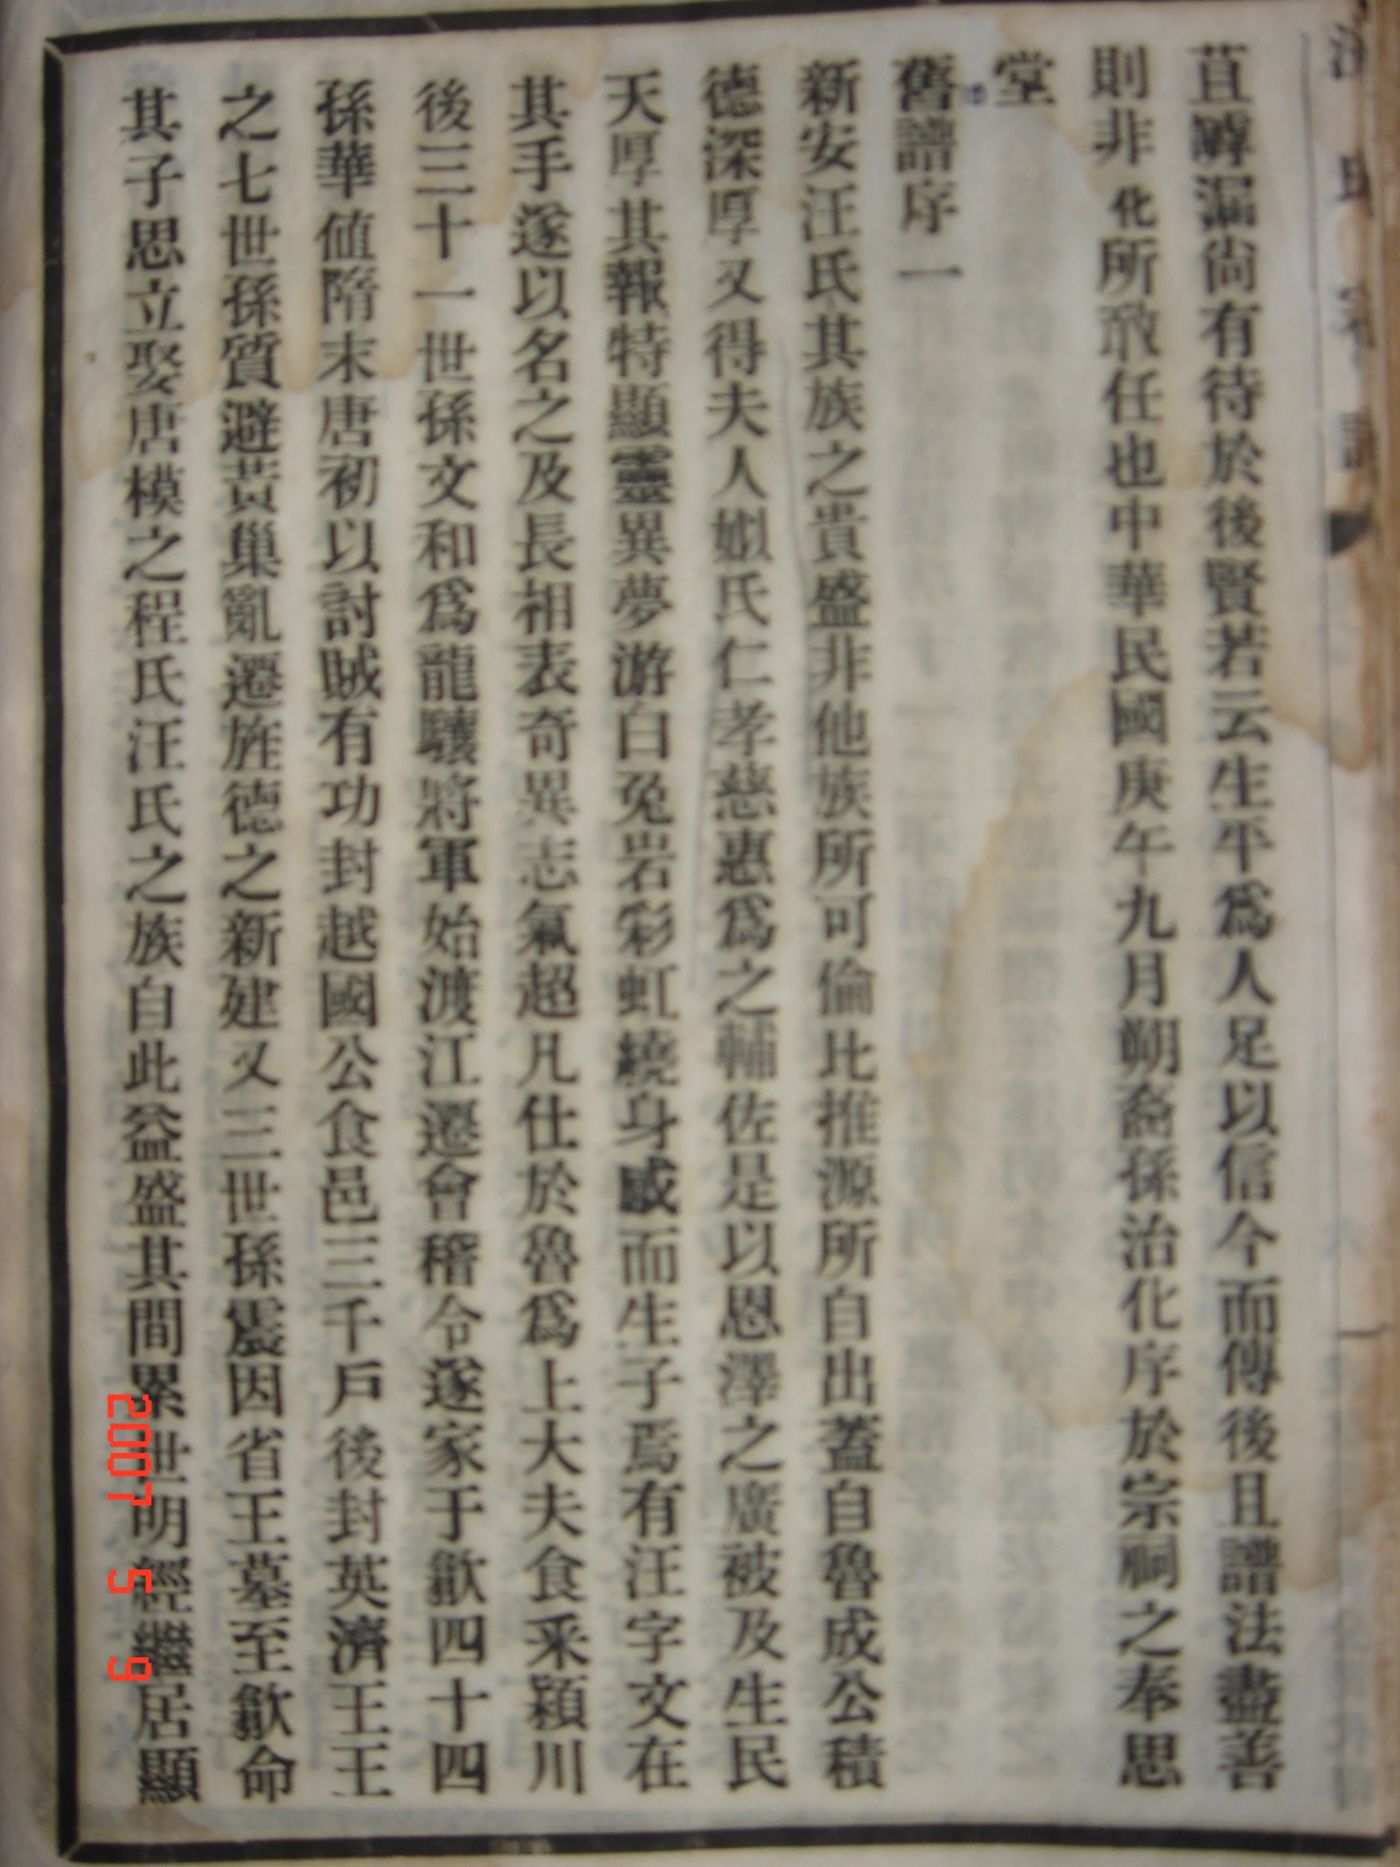 苴罅漏尙有待於後賢若云生平爲人足以信今而傳後且譜法盡善
則非化所敢任也中華民國庚午九月朔裔孫治化序於宗祠之奉思
堂
舊譜序一
新安汪氏其族之貴盛非他族所可倫比推源所自出蓋自魯成公積
德深厚又得夫人姒氏仁孝慈惠爲之輔佐是以恩澤之廣被及生民
天厚其報特顯靈異夢游白兔岩彩虹繞身感而生子焉有汪字文在
其手遂以名之及長相表奇異志氣超凡仕於魯爲上大夫食采潁川
後三十一世孫文和爲龍驤將軍始渡江遷會稽令遂家于歙四十四
孫華值隋末唐初以討賊有功封越國公食邑三千戶後封英濟王王
之七世孫質避黃巢亂遷旌德之新建又三世孫震因省王墓至歙命
其子思立娶唐模之程氏汪氏之族自此益盛其間累世明經繼居顯
2007 5 9